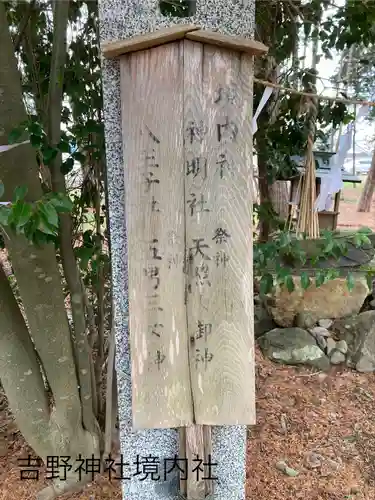 境内社
神明社 祭神 天照大御神
八王子社 祭神 五男三女神
吉野神社境内社